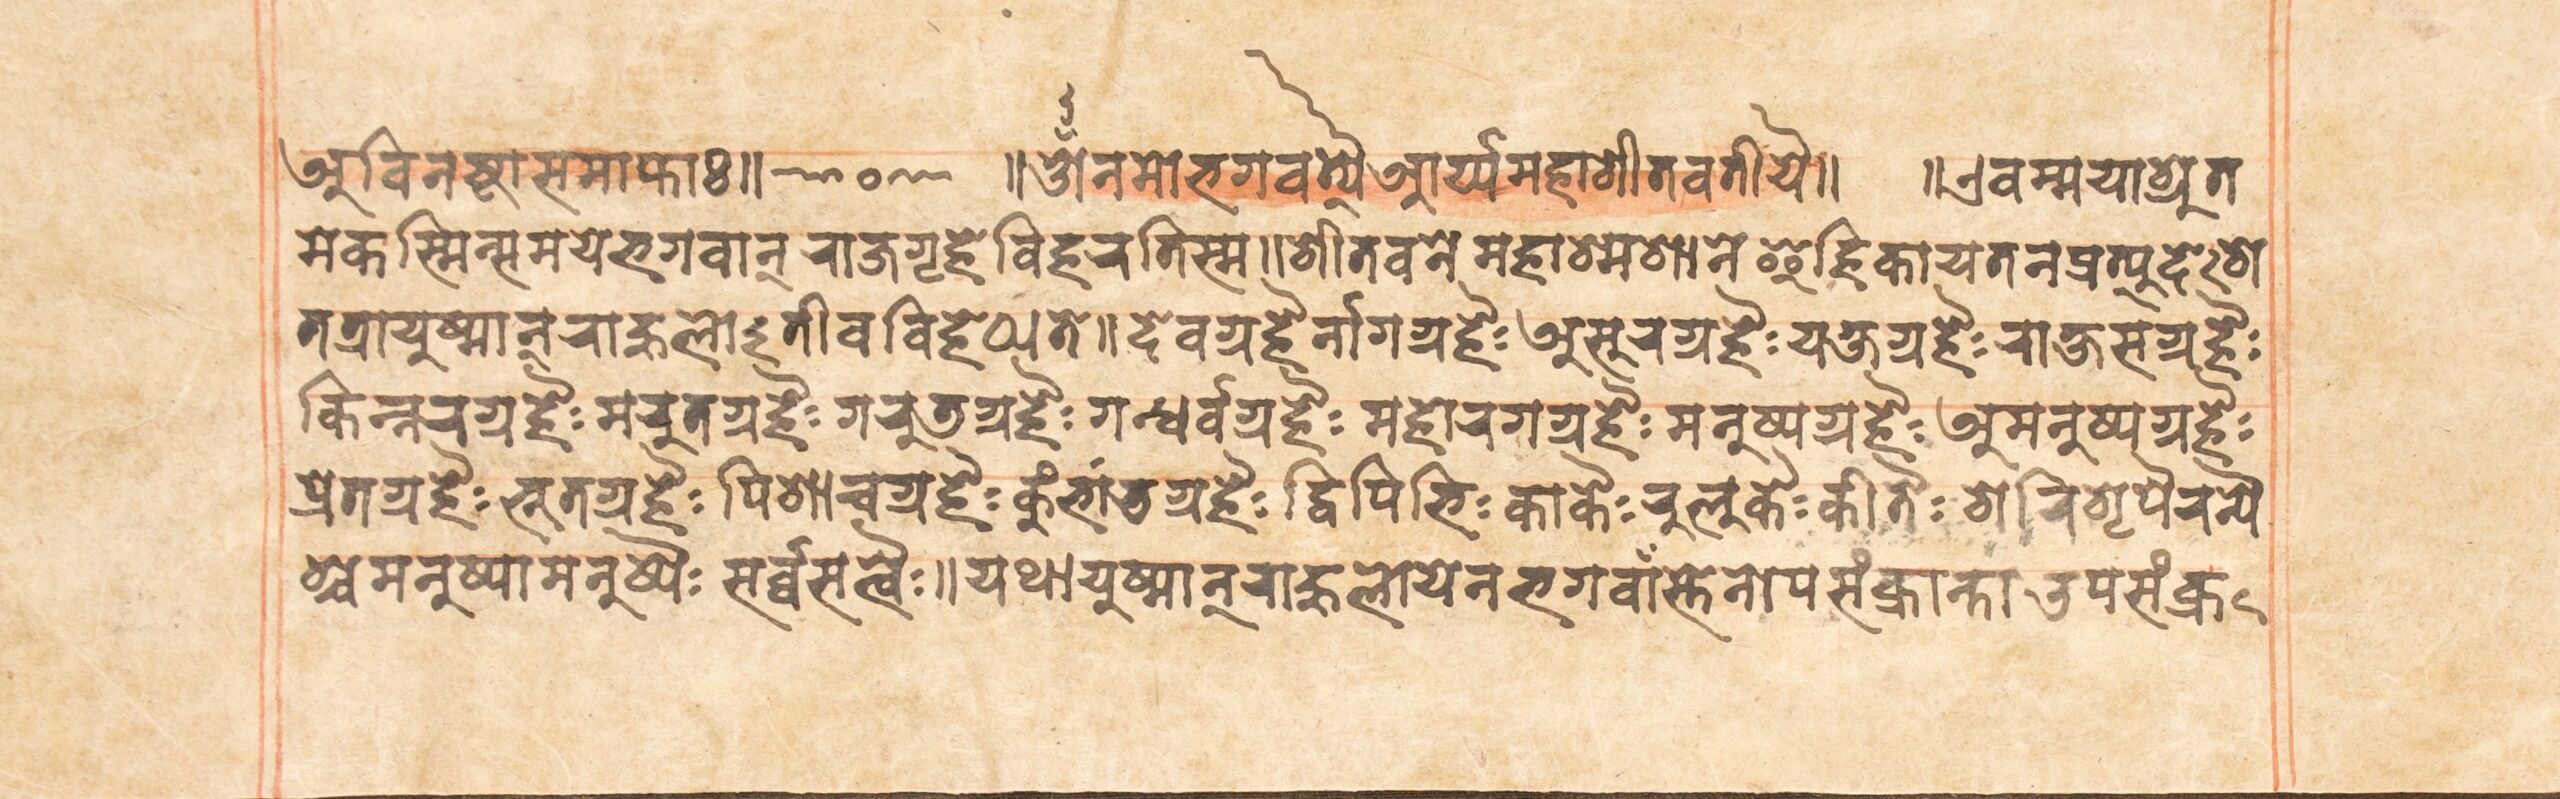 अविनष्टा समाप्ताः॥ ॥ॐ नमो भगवत्यै आर्य्यमहाशीतवतीयै॥ ॥एवम्मया श्रुत
मेकस्मिन्समये भगवान् राजगृहे विहरति स्म॥शीतवने महाश्मशाने इंहिकायतनप्रत्युद्देशे
तत्रायुष्मान् राहुलोऽतीव विहेठ्यते॥ देवग्रहैर्नागग्रहैः असुरग्रहैः यक्षग्रहैः राक्षसग्रहैः
किन्नरग्रहैः मरुतग्रहैः गरुडग्रहैः गन्धर्वग्रहैः महोरगग्रहैः मनुष्यग्रहैः अमनुष्यग्रहैः
प्रेतग्रहैः भूतग्रहैः पिशाचग्रहैः कुंभांडग्रहैः द्विपिभिः काकैः रुलुकैः कीतैः शेरिशृपैरन्यै
श्च मनुष्यामनुष्यैः सर्व्वसत्वैः॥ यथायुष्मान् राहुलो येन भगवाँस्तेनोपसंक्रान्ता उपसंक्र